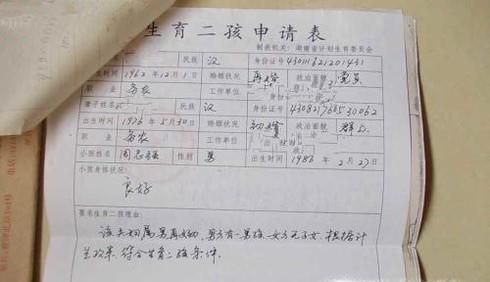 生育二孩申请表
制表机关：湖南省计划生育委员会
民族 汉 身份证号
出生时间 1962年12月1日 婚姻状况 再婚 政治面貌 党员
职业 务农 工作单位
妻子姓名 民族 汉 身份证号
出生时间 1976年5月30日 婚姻状况 初婚 政治面貌 群众
职业 务农 工作单位
小孩姓名 周志强 性别 男 出生时间 1986年2月27日
小孩身体状况：
良好
要求生育二孩理由：
该夫妇属男再女初，男方有一男孩，女方无子女，根据计
生政策，符合生育二孩条件。